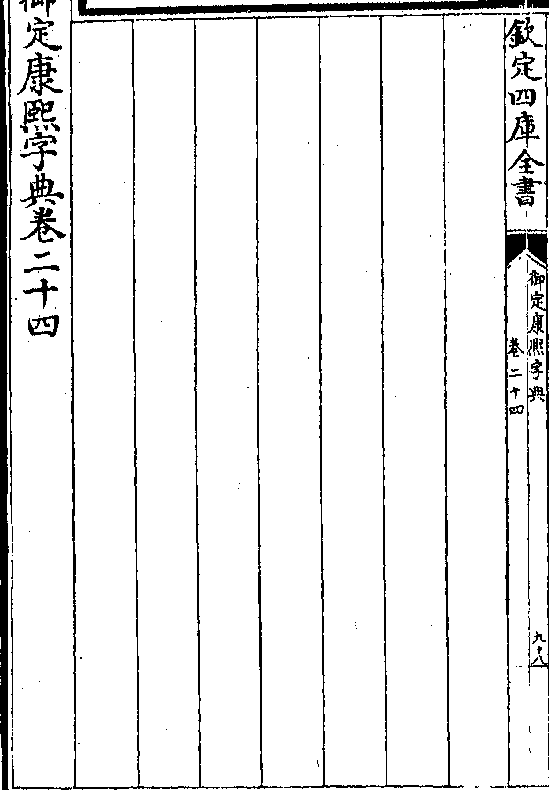 欽定四庫全書
御定康熙字典
卷二十四
九十八
御定康熙字典卷二十四